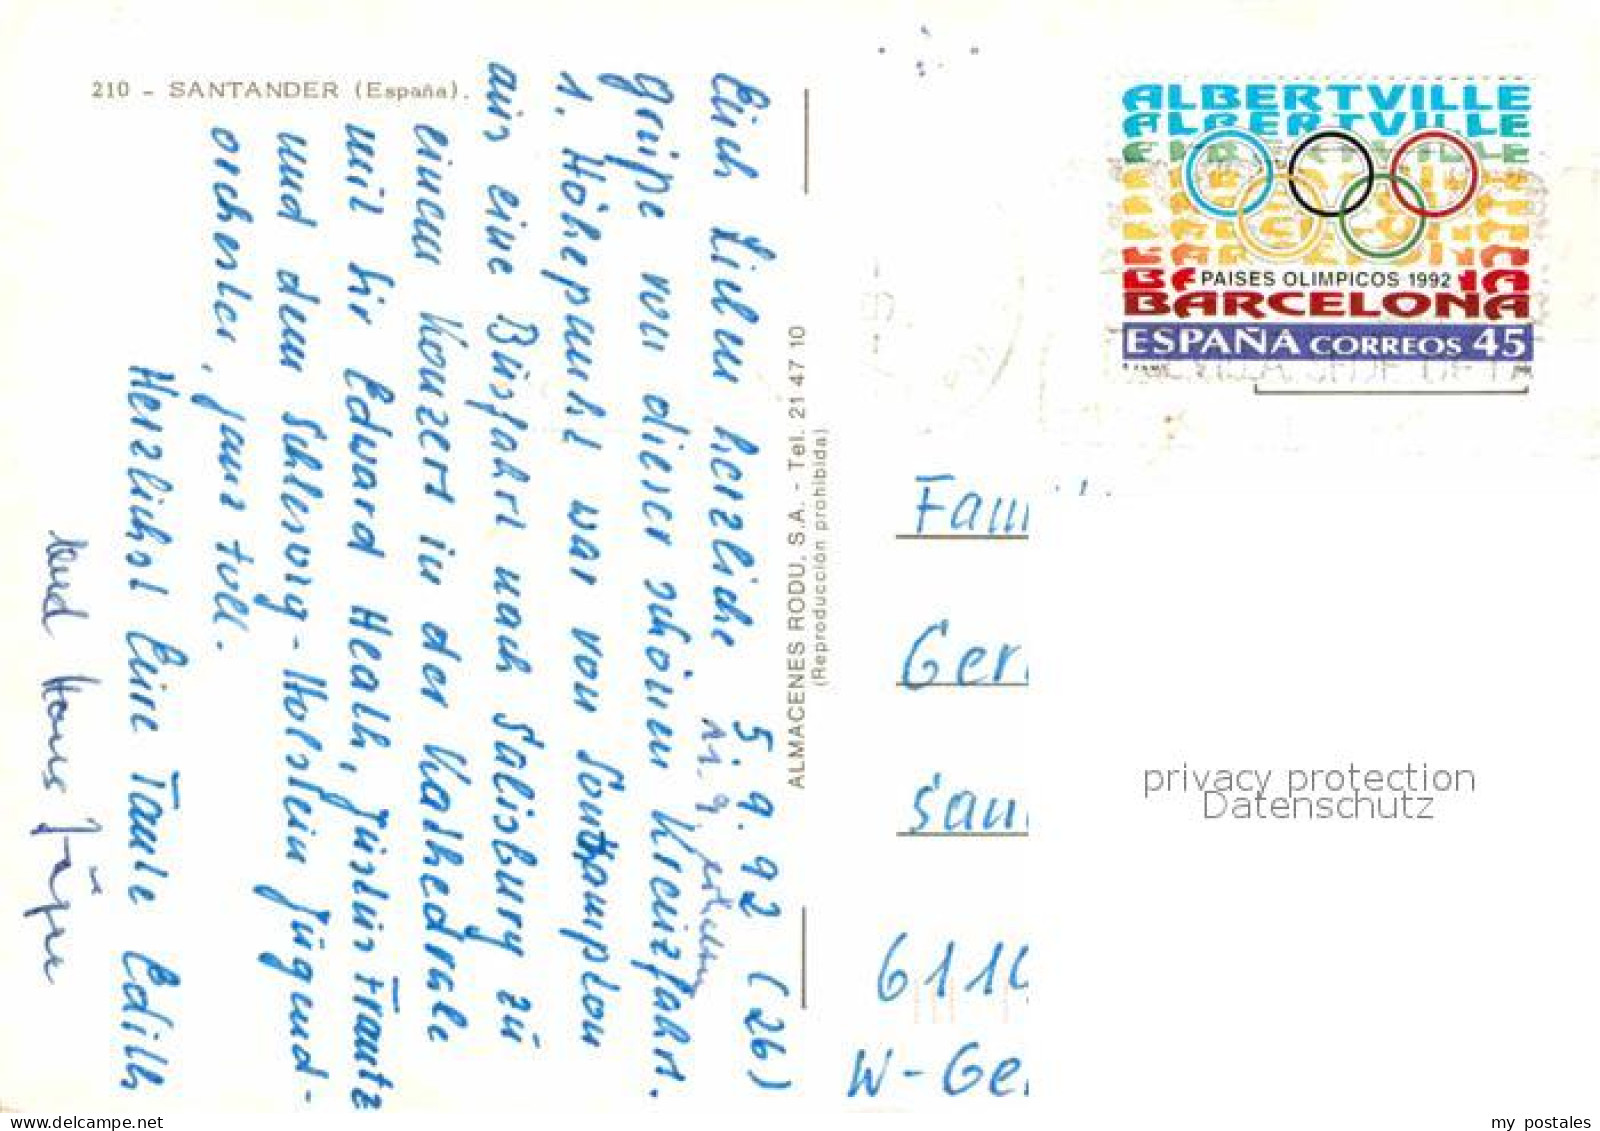 210 - SANTANDER (España).
5.9.92 (26)
Euch Lieben herzliche
Grüße von dieser schönen Kreuzfahrt.
1. Höhepunkt war von Southampton
aus eine Busfahrt nach Salisbury zu
einem Konzert in der Kathedrale
mit Sir Edward Heath, Justus Frantz
und dem Schleswig-Holstein Jugend-
orchester, ganz toll.
Herzlichst Eure Tante Edith
und Hans Jürgen
ALMACENES RODU, S.A. - Tel. 21 47 10
(Reproducción prohibida)
ALBERTVILLE
ALBERTVILLE
PAISES OLIMPICOS 1992
BARCELONA
ESPAÑA CORREOS 45
Fami
Ger
San
611
W-Ge
privacy protection
Datenschutz
delcampe.net
my_postales